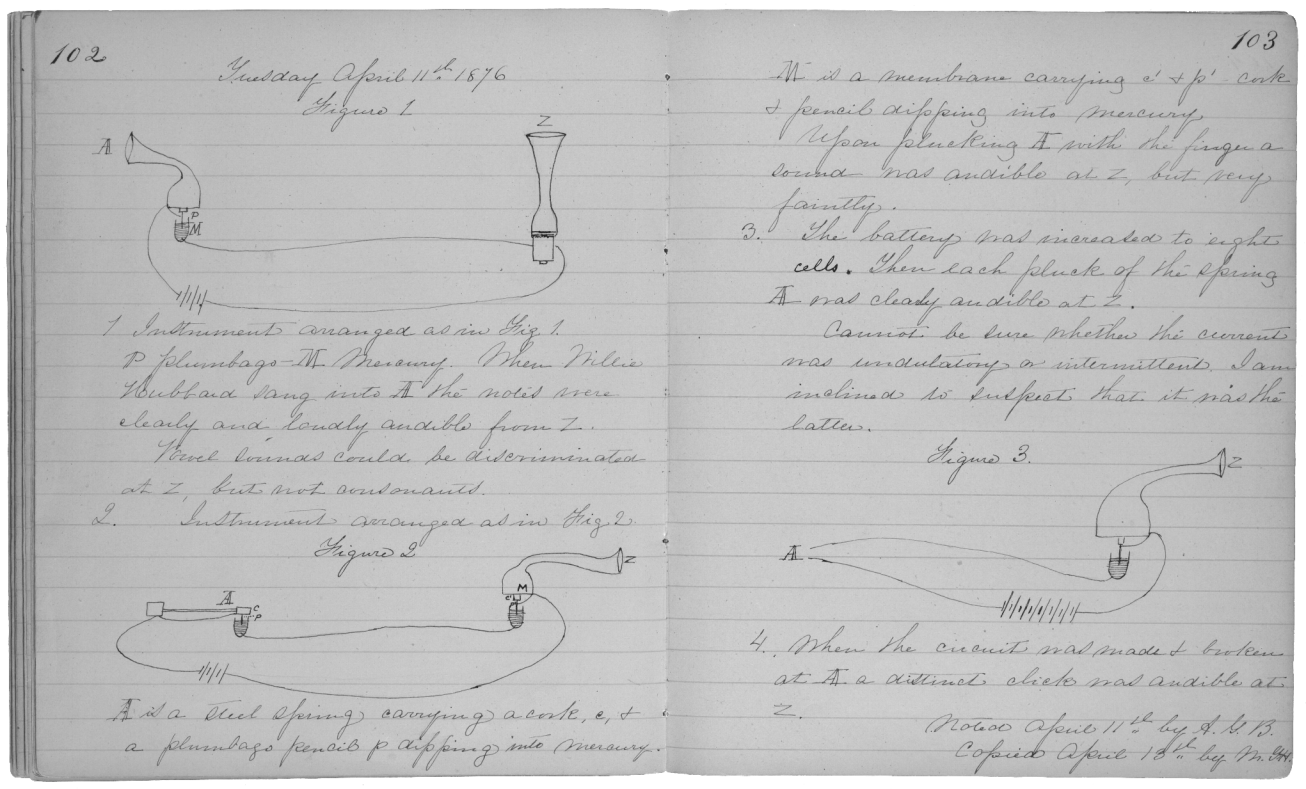 102
Tuesday April 11th 1876
Figure 1
A
Z
P
M
1 Instrument arranged as in Fig 1.
P plumbago – M Mercury. When Willie
Hubbard sang into A the notes were
clearly and loudly audible from Z.
Vowel sounds could be discriminated
at Z, but not consonants.
2. Instrument arranged as in Fig 2.
Figure 2
Z
M
A
c
c'
P
A is a steel spring carrying a cork, c, &
a plumbago pencil p dipping into mercury.
103
M is a membrane carrying c' & p' - cork
& pencil dipping into mercury
Upon plucking A with the finger a
sound was audible at Z, but very
faintly.
3. The battery was increased to eight
cells. Then each pluck of the spring
A was clealy audible at Z.
Cannot be sure whether the current
was undulatory or intermittent. I am
inclined to suspect that it was the
latter.
Figure 3.
Z
A
4. When the circuit was made & broken
at A a distinct click was audible at
Z.
Noted April 11th by A. G. B.
Copied April 13th by M.